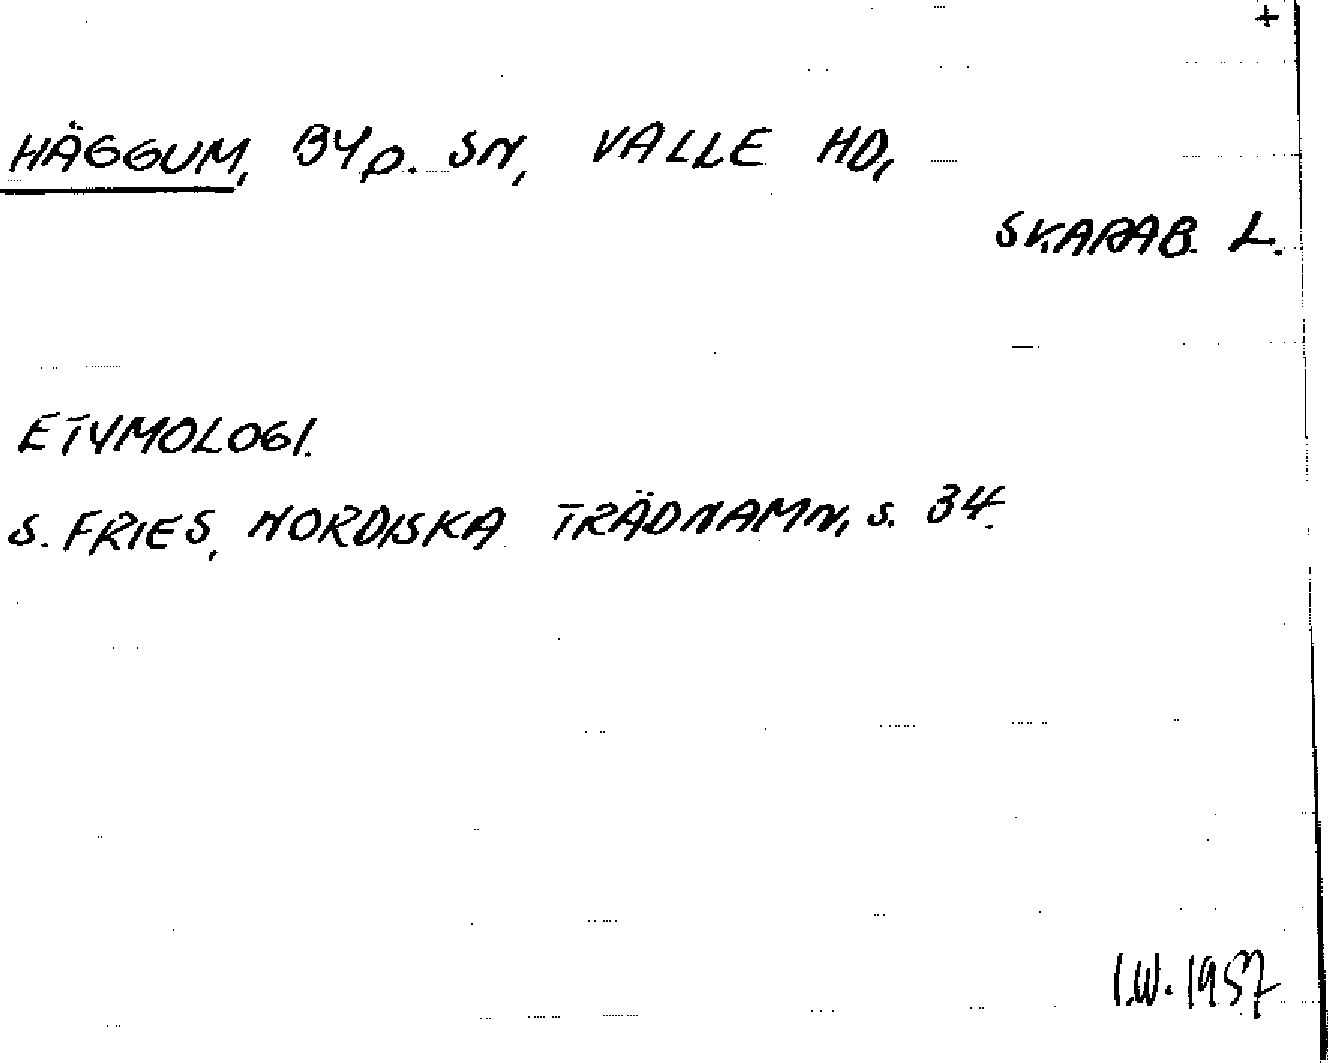 +
HÄGGUM, BY o. SN, VALLE HD,
SKARAB. L.
ETYMOLOGI.
S. FRIES, NORDISKA TRÄDNAMN, s. 34.
I.W. 1957